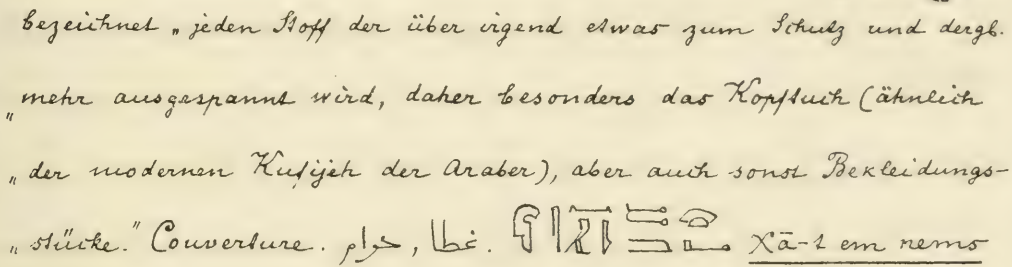 bezeichnet „jeden Stoff der über irgend etwas zum Schutz und dergl.
„mehr ausgespannt wird, daher besonders das Kopftuch (ähnlich
„der modernen Kufijeh der Araber), aber auch sonst Bekleidungs-
„stücke." Couverture. غطا, حرام. χā-t em nems